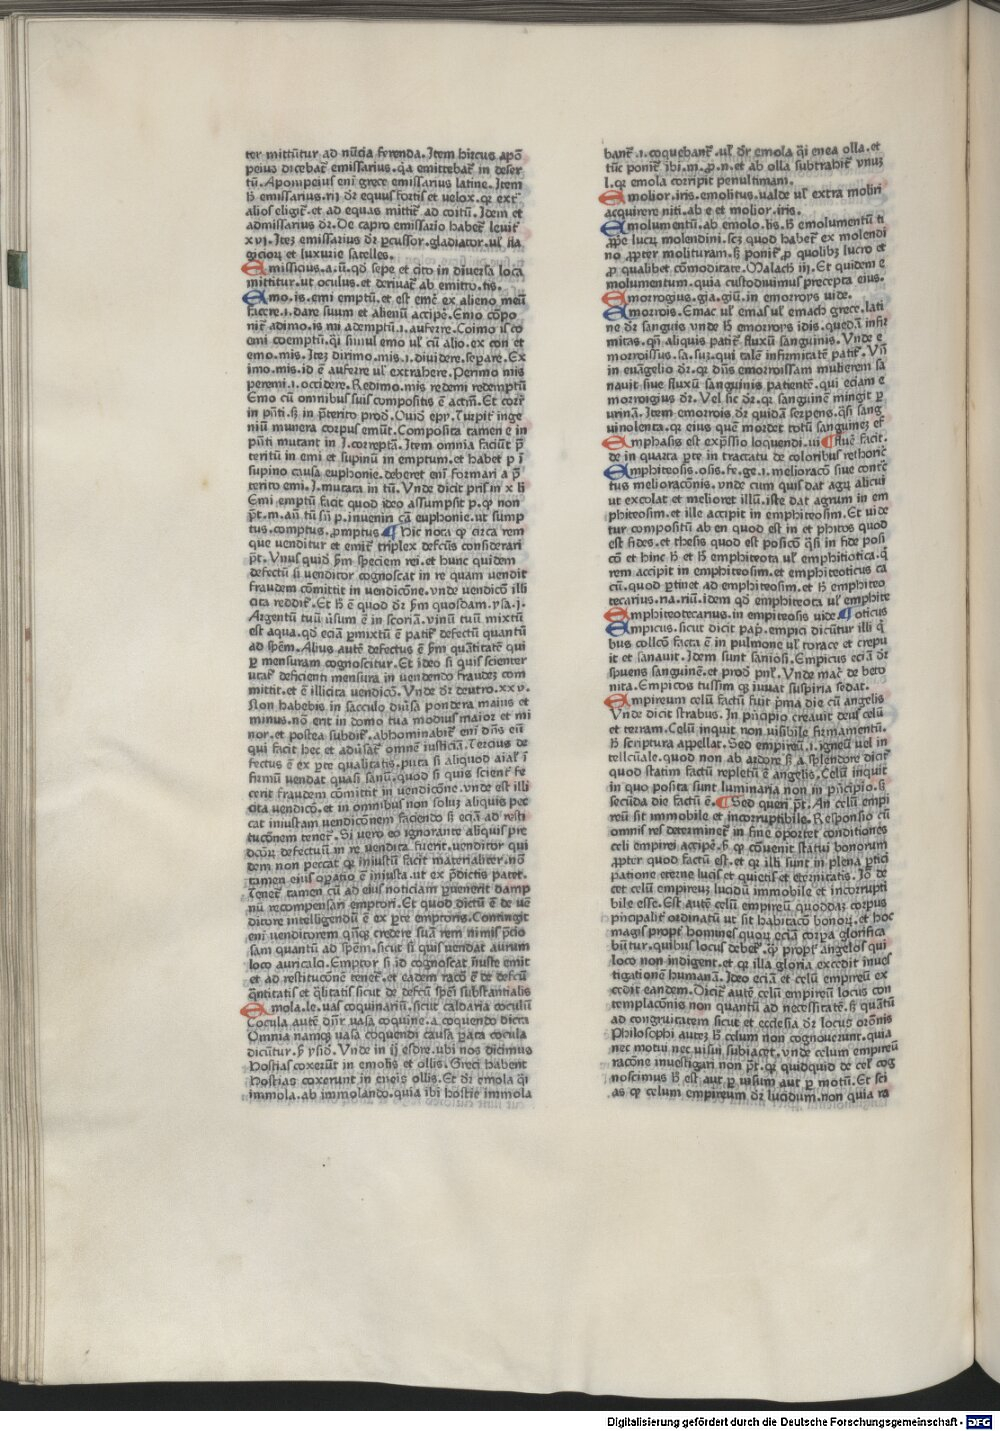 ter mittũtur ad nũcia ferenda. Item hircus apõ
peius dicebat̃ emissarius. q̃a emittebat̃ in deser
tũ. Apompeius eni grece emissarius latine. Item
h̃ emissarius. rij dr̃ equus fortis et velox. qr ext̃
alios eligit̃. et ad equas mittit̃ ad coitũ. Idem et
admissarius dr̃. De capro emissario habet̃ leuit̃
xvi. Itez emissarius dr̃ ꝑcussor. gladiator. ul̃ fla
gicioꝝ et luxurie satelles.
Emissicius. a. ũ. qđ sepe et cito in diuersa loca
mittitur. ut oculus. et deriuat̃ ab emitto. tis.
Emo. is. emi emptũ. et est emẽ ex alieno meũ
facere. i. dare suum et alienũ accipẽ. Emo cõpo
nit̃ adimo. is mi ademptũ. i. auferre. Coimo is co
emi coemptũ. q̃i simul emo ul̃ cũ alio. ex con et
emo. mis. Itez dirimo. mis. i. diuidere. separe. Ex
imo. mis. id ẽ auferre ul̃ extrahere. Perimo mis
peremi. i. occidere. Redimo. mis redemi redemptũ
Emo cũ omnibus suis compositis ẽ actiũ. Et corr̃
in pñti. ꝫ in p̃terito prod̃. Ouid̃ epỹ. Turpit̃ inge
niũ munera corpus emũt. Composita tamen e in
pñti mutant in I. correptã. Item omnia faciũt p̃
teritũ in emi et supinũ in emptum. et habet p ĩ
supino causa euphonie. deberet eni formari a p̃
terito emi. I. mutata in tũ. Vnde dicit pris̃ in x li
Emi emptũ facit quod ideo assumpsit p. qr non
p̃t. m. añ tũ sñ p. inueniri cã euphonie. ut sump
tus. comptus. ꝓmptus ¶ Hic nota qđ circa rem
que venditur et emit̃ triplex defcũs considerari
p̃t. Vnus quid̃ ẜm speciem rei. et hunc quidem
defectũ si venditor cognoscat in re quam vendit
fraudem cõmittit in vendicõne. vnde vendicõ illi
cita reddit̃. Et h̃ ẽ quod dr̃ ẜm quosdam. ysa. j.
Argentũ tuũ ũsum ẽ in scoriã. vinũ tuũ mixtũ
est aqua. qđ eciã ꝑmixtũ ẽ patit̃ defectũ quantũ
ad spẽm. Alius autẽ defectus ẽ ẜm quãtitatẽ qui
ꝑ mensuram cognoscitur. Et ideo si quis scienter
utat̃ deficienti mensura in vendendo fraudez com
mittit. et ẽ illicita vendicõ. Vnde dr̃ deutro. xxv.
Non habebis in sacculo diũsa pondera maius et
minus. nõ erit in domo tua modius maior et mi
nor. et postea subdit̃. abhominabit̃ eni dñs eũ
qui facit hec et adũsat̃ omnẽ iusticiã. Tercius de
fectus ẽ ex ꝑte qualitatis. puta si aliquod aĩal ĩ
firmũ vendat quasi sanũ. quod si quis scient̃ fe
cerit fraudem cõmittit in vendicõne. vnde est illi
cita vendicõ. et in omnibus non soluz aliquis pec
cat iniustam vendicõnem faciendo ꝫ eciã ad resti
tucõnem tenet̃. Si vero eo ignorante aliquis pre
dcoꝝ defectuũ in re vendita fuerit. venditor qui
dem non peccat qr iniustũ facit materialiter. nõ
tamen eius oꝑatio ẽ iniusta. ut ex p̃dictis patet.
Tenet̃ tamen cũ ad eius noticiam ꝑuenerit damp
nũ recompensari emptori. Et quod dictũ ẽ de vẽ
ditore intelligendũ ẽ ex ꝑte emptoris. Contingit
eni venditorem qñqꝫ credere suã rem nimis p̃cio
sam quantũ ad spẽm. sicut si quis vendat aurum
loco auricalci. Emptor si id cognoscat iñuste emit
et ad restitucõnem tenet̃. et eadem racõ ẽ de defcũ
q̃ntitatis et q̃litatis sicut de defcũ spẽi substantialis
Emola. le. vas coquinariũ. sicut caldaria coculũ
Cocula autẽ dñr vasa coquine. a coquendo dicta
Omnia namqꝫ vasa coquendi causa ꝑata cocula
dicũtur. ẜ ysid̃. Vnde in ij esdre. ubi nos dicimus
hostias coxerũt in emolis et ollis. Greci habent
hostias coxerunt in eneis ollis. Et dr̃ emola q̃i
immola. ab immolando. quia ibi hostie immola
bant̃. i. coquebant̃. ul̃ dr̃ emola q̃i enea olla. et
tũc ponit̃ ibi. m. ꝓ. n. et ab olla subtrahit̃ vnuz
l. qr emola corripit penultimam.
Emolior. iris. emolitus. ualde ul̃ extra moliri
acquirere niti. ab e et molior. iris.
Emolumentũ. ab emolo. lis. h̃ emolumentũ ti
ꝓpe lucꝝ molendini. scz quod habet̃ ex molendi
no ꝓpter molituram. ꝫ ponit̃ ꝓ quolibꝫ lucro et
ꝓ qualibet cõmoditate. Malach iij. Et quidem e
molumentum. quia custodiuimus precepta eius.
Emorrogius. gia. giũ. in emorroys uide.
Emorrois. Emac ul̃ emas ul̃ emach grece. lati
ne dr̃ sanguis vnde h̃ emorroys idis. quedã infir
mitas. qñ aliquis patit̃ fluxũ sanguinis. Vnde e
morroissus. sa. suz. qui talẽ infirmitatẽ patit̃. Vñ
in euãgelio dr̃. qr dñs emorroissam mulierem sa
nauit siue fluxũ sanguinis patientẽ. qui eciam e
morroigius dr̃. Vel sic dr̃. qr sanguinẽ mingit ꝑ
urinã. Item emorrois dr̃ quidã serpens. q̃si sang
uinolenta. qr eius quẽ mordet totũ sanguinez ef
Emphasis est exp̃ssio loquendi. iii ¶ fluẽ facit.
de in quarta ꝑte in tractatu de coloribus rethoric̃
Emphiteosis. osis. fe. ge. i. melioracõ siue contẽ
tus melioracõnis. vnde cum quis dat agꝝ alicui
ut excolat et melioret illũ. iste dat agrum in em
phiteosim. et ille accipit in emphiteosim. Et uide
tur compositũ ab en quod est in et phitos quod
est fides. et thesis quod est posicõ q̃si in fide posi
cõ et hinc h̃ et h̃ emphiteota ul̃ emphitiotica. q̃
rem accipit in emphiteosim. et emphiteoticus ca
cũ. quod ꝑtinet ad emphiteosim. et h̃ emphiteo
tecarius. na. riũ. idem qđ emphiteota ul̃ emphite
Emphiteotecarius. in empiteosis uide ¶ oticus
Empicus. sicut dicit pap̃. empici dicũtur illi q̃
bus collcõ facta ẽ in pulmone ul̃ torace et crepu
it et sanauit. Idem sunt saniosi. Empicus eciã dr̃
spuens sanguinẽ. et prod̃ pñl̃. Vnde mac̃ de beto
nita. Empicos tussim qꝫ iuuat suspiria sedat.
Empireum celũ factũ fuit p̃ma die cũ angelis
Vnde dicit strabus. In p̃ncipio creauit deus celũ
et terram. Celũ inquit non visibile firmamentũ.
h̃ scriptura appellat. Sed empireũ. i. igneũ vel in
tellcũale. quod non ab ardore ꝫ a splendore dicit̃
quod statim factũ repletũ ẽ angelis. Celũ inquit
in quo posita sunt luminaria non in p̃ncipio. ꝫ
secũda die factũ ẽ. ¶ Sed queri p̃t. An celũ empi
reũ sit immobile et incorruptibile. Responsio cũ
omnis res determinet̃ in fine oportet conditiones
celi empirei accipẽ. ẜ qđ cõuenit statui bonorum
ꝓpter quod factũ est. et qr illi sunt in plena ꝑtici
patione eterne lucis et quietis et eternitatis. Iõ de
cet celũ empireuz lucidũ immobile et incorrupti
bile esse. Est autẽ celũ empireũ quoddaz corpus
p̃ncipalit̃ ordinatũ ut sit habitacõ bonoꝝ. et hoc
magis propt̃ homines quoꝝ eciã corpa glorifica
bũtur. quibus locus debet̃. q̃ propt̃ angelos qui
loco non indigent. et qr illa gloria excedit inues
tigationẽ humanã. Ideo eciã et celũ empireũ ex
cedit eandem. Dicit̃ autẽ celũ empireũ locus con
templacõnis non quantũ ad necessitatẽ. ꝫ quãtũ
ad congruitatem sicut et ecclesia dr̃ locus orõnis
Philosophi autez h̃ celum non cognouerunt. quia
nec motui nec uisui subiacet. vnde celum empireũ
racõne inuestigari non p̃t. qr quidquid de cel̃ cog
noscimus h̃ est aut ꝑ uisum aut ꝑ motũ. Et sci
as qđ celum empireum dr̃ lucidum. non quia ra
Digitalisierung gefördert durch die Deutsche Forschungsgemeinschaft - DFG